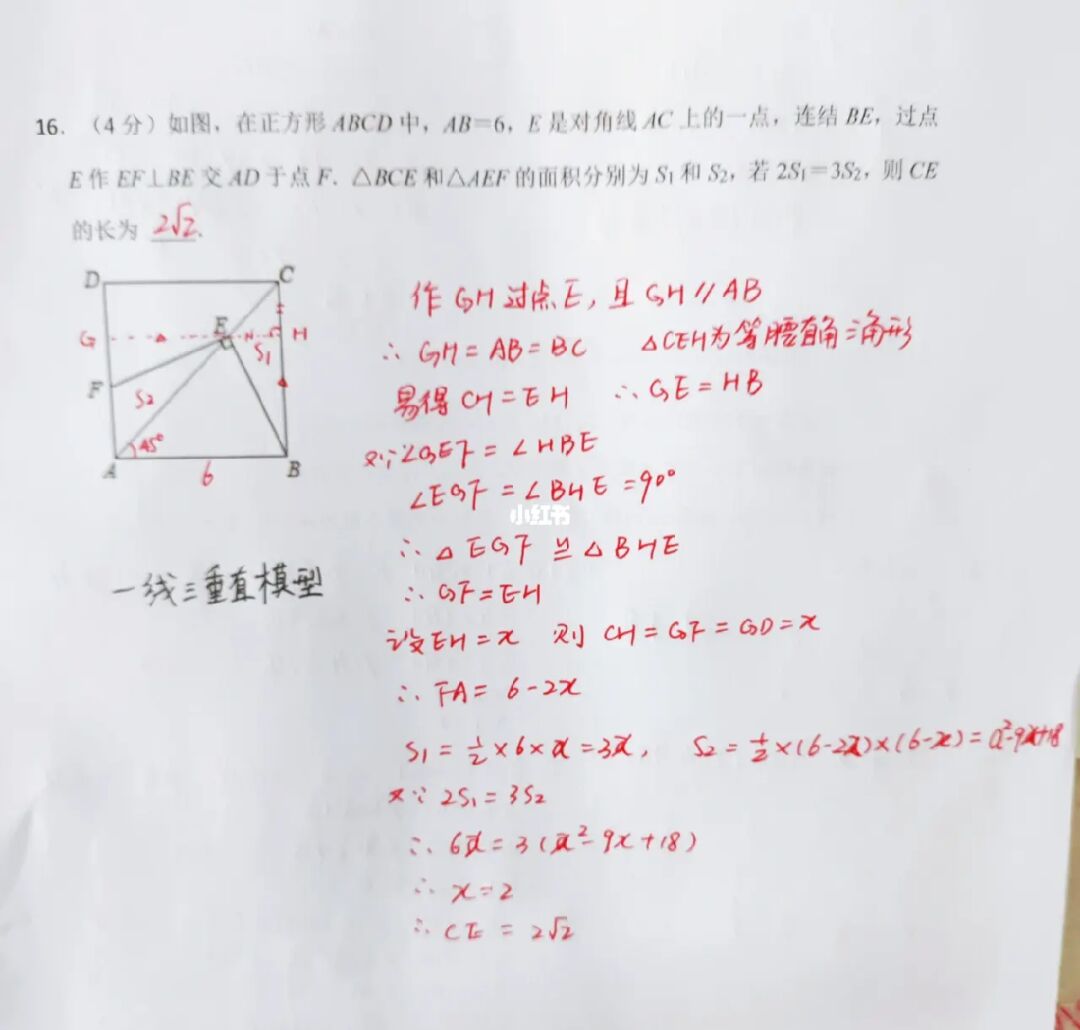 16. （4分）如图，在正方形ABCD中，AB=6，E是对角线AC上的一点，连结BE，过点
E作EF⊥BE交AD于点F．△BCE和△AEF的面积分别为S₁和S₂，若2S₁=3S₂，则CE
的长为 2√2．
D C
G E H
S₁
F S₂
45°
A 6 B
作GH过点E，且GH∥AB
∴GH=AB=BC △CEH为等腰直角三角形
易得CH=EH ∴GE=HB
又∵∠GEF=∠HBE
∠EGF=∠BHE=90°
小红书
∴△EGF≌△BHE
一线三垂直模型
∴GF=EH
设EH=x 则CH=GF=GD=x
∴FA=6-2x
S₁=½×6×x=3x， S₂=½×(6-2x)×(6-x)=x²-9x+18
又∵2S₁=3S₂
∴6x=3(x²-9x+18)
∴x=2
∴CE=2√2